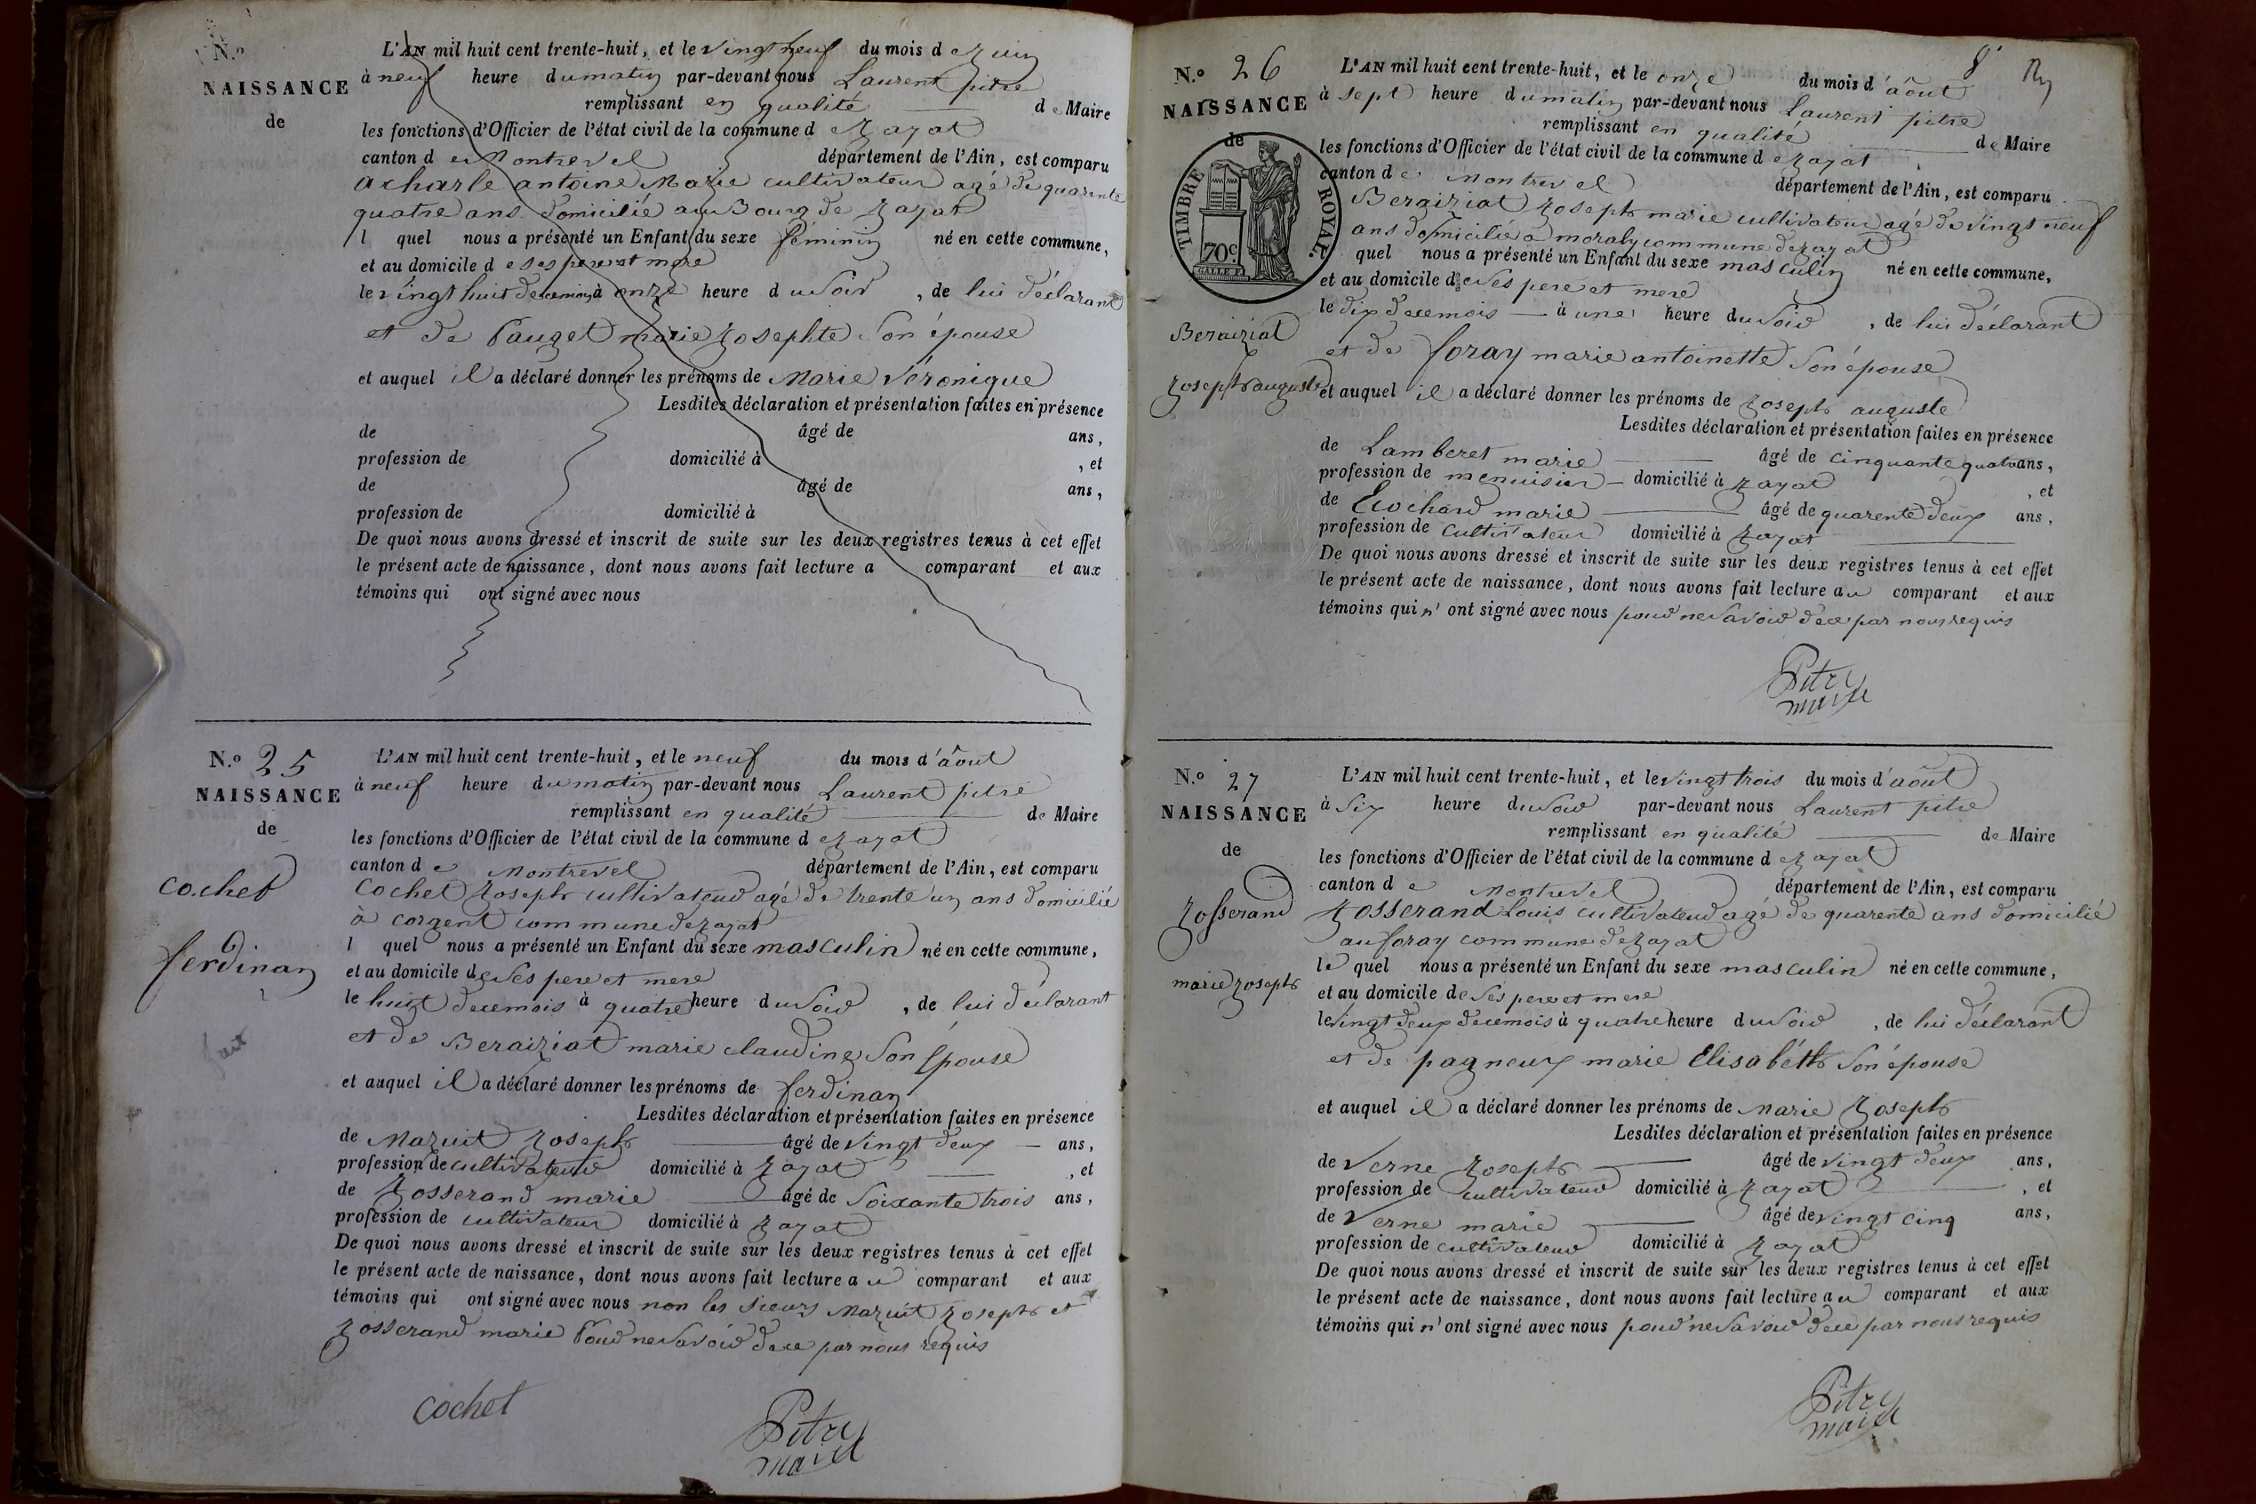 N.o
NAISSANCE
de
L'AN mil huit cent trente-huit, et le vingt neuf du mois de juin
à neuf heure du matin par-devant nous Laurent pitre
remplissant en qualité de Maire
les fonctions d'Officier de l'état civil de la commune de jayat
canton de Montrevel département de l'Ain, est comparu
acharle antoine Marie cultivateur agé de quarente
quatre ans domicilié au Bourg de jayat
l quel nous a présenté un Enfant du sexe féminin né en cette commune,
et au domicile de ses pere et mere
le vingt huit de ce mois à onze heure du soir, de lui déclarant
et de Pauget marie josephte son épouse
et auquel il a déclaré donner les prénoms de Marie véronique
Lesdites déclaration et présentation faites en présence
de âgé de ans,
profession de domicilié à , et
de âgé de ans,
profession de domicilié à
De quoi nous avons dressé et inscrit de suite sur les deux registres tenus à cet effet
le présent acte de naissance, dont nous avons fait lecture a comparant et aux
témoins qui ont signé avec nous
N.o 25
NAISSANCE
de
cochet
ferdinan
L'AN mil huit cent trente-huit, et le neuf du mois d'âout
à neuf heure du matin par-devant nous Laurent pitre
remplissant en qualité de Maire
les fonctions d'Officier de l'état civil de la commune de jayat
canton de Montrevel département de l'Ain, est comparu
cochet joseph cultivateur agé de trente un ans domicilié
à corgent commune de jayat
l quel nous a présenté un Enfant du sexe masculin né en cette commune,
et au domicile de ses pere et mere
le huit de ce mois à quatre heure du soir, de lui déclarant
et de Beraiziat marie claudine son épouse
et auquel il a déclaré donner les prénoms de ferdinan
Lesdites déclaration et présentation faites en présence
de Mazuit joseph âgé de vingt deux ans,
profession de cultivateur domicilié à jayat , et
de josserand marie âgé de soixante trois ans,
profession de cultivateur domicilié à jayat
De quoi nous avons dressé et inscrit de suite sur les deux registres tenus à cet effet
le présent acte de naissance, dont nous avons fait lecture au comparant et aux
témoins qui ont signé avec nous non les sieurs Mazuit joseph et
josserand marie Pour ne savoir de ce par nous requis
cochet
Pitre
maire
8e
N.o 26
NAISSANCE
de
TIMBRE ROYAL.
70c.
Beraiziat
joseph auguste
L'AN mil huit cent trente-huit, et le onze du mois d'âout
à sept heure du matin par-devant nous Laurent pitre
remplissant en qualité de Maire
les fonctions d'Officier de l'état civil de la commune de jayat
canton de Montrevel département de l'Ain, est comparu
Beraiziat joseph marie cultivateur agé de vingt neuf
ans domicilié a moraly commune de jayat
quel nous a présenté un Enfant du sexe masculin né en cette commune,
et au domicile de ses pere et mere
le dix de ce mois à une heure du soir, de lui déclarant
et de foray marie antoinette son épouse
et auquel il a déclaré donner les prénoms de joseph auguste
Lesdites déclaration et présentation faites en présence
de Lamberet marie âgé de cinquante quatre ans,
profession de menuisier domicilié à jayat , et
de Ecochard marie âgé de quarente deux ans,
profession de cultivateur domicilié à jayat
De quoi nous avons dressé et inscrit de suite sur les deux registres tenus à cet effet
le présent acte de naissance, dont nous avons fait lecture au comparant et aux
témoins qui n'ont signé avec nous pour ne savoir de ce par nous requis
Pitre
maire
N.o 27
NAISSANCE
de
josserand
marie joseph
L'AN mil huit cent trente-huit, et le vingt trois du mois d'aout
à six heure du soir par-devant nous Laurent pitre
remplissant en qualité de Maire
les fonctions d'Officier de l'état civil de la commune de jayat
canton de Montrevel département de l'Ain, est comparu
josserand Louis cultivateur agé de quarente ans domicilié
au foray commune de jayat
le quel nous a présenté un Enfant du sexe masculin né en cette commune,
et au domicile de ses pere et mere
le vingt deux de ce mois à quatre heure du soir, de lui déclarant
et de pagneux marie Elisabeth son épouse
et auquel il a déclaré donner les prénoms de marie joseph
Lesdites déclaration et présentation faites en présence
de verne joseph âgé de vingt deux ans,
profession de cultivateur domicilié à jayat , et
de verne marie âgé de vingt cinq ans,
profession de cultivateur domicilié à jayat
De quoi nous avons dressé et inscrit de suite sur les deux registres tenus à cet effet
le présent acte de naissance, dont nous avons fait lecture au comparant et aux
témoins qui n'ont signé avec nous pour ne savoir de ce par nous requis
Pitre
maire